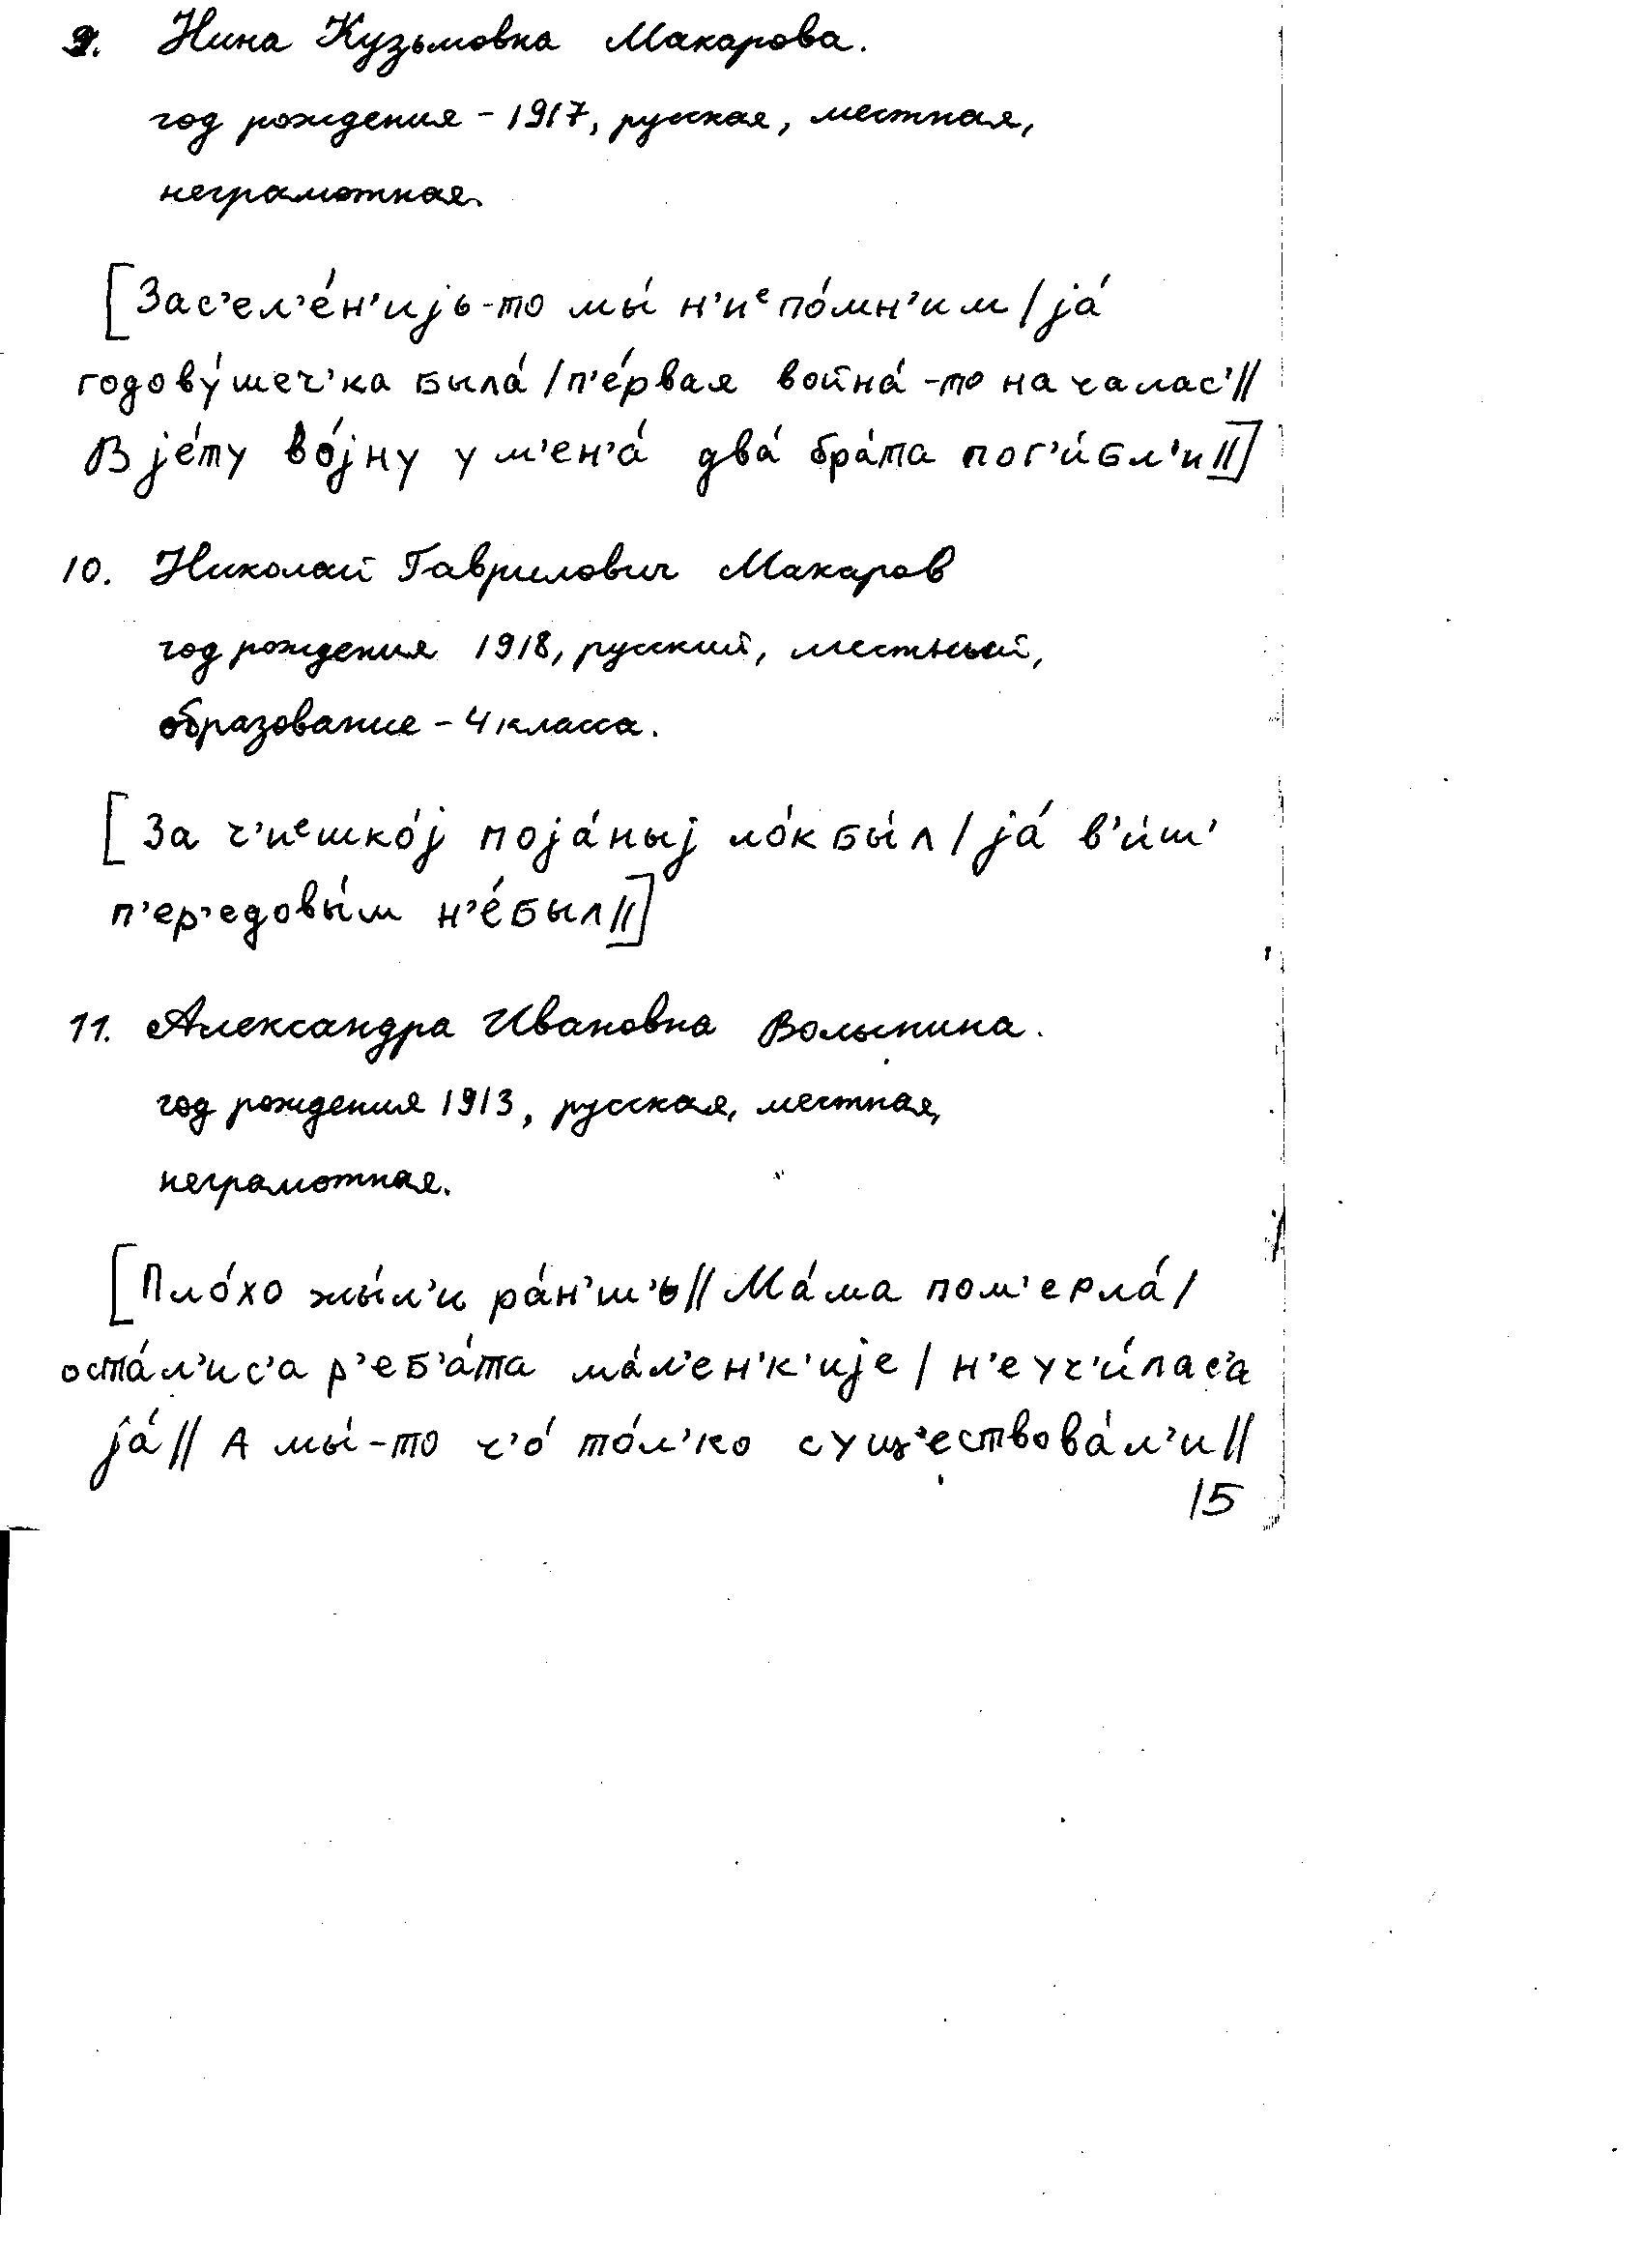 9. Нина Кузьмовна Макарова.
год рождения - 1917, русская, местная,
неграмотная.
[Зас'ел'е́н'иjь-то мы́ н'иᵉпо́мн'им/jа́
годову́шеч'ка была́/п'е́рвая война́-то началас'//
В jе́ту во́jну у м'ен'а́ два́ бра́та пог'и́бл'и//]
10. Николай Гаврилович Макаров
год рождения 1918, русский, местный,
образование - 4 класса.
[За ч'иᵉшко́j поjа́ныj ло́к бы́л/jа́ в'и́ш'
п'ер'едовы́м н'е́был//]
11. Александра Ивановна Волынина.
год рождения 1913, русская, местная,
неграмотная.
[Пло́хо жы́л'и ра́н'ш'ь// Ма́ма пом'ерла́/
оста́л'ис'а р'еб'а́та ма́л'ен'к'иjе/ н'е уч'и́лас'а
jа́// А мы́-то ч'о́ то́л'ко сущ'ествова́л'и//
15